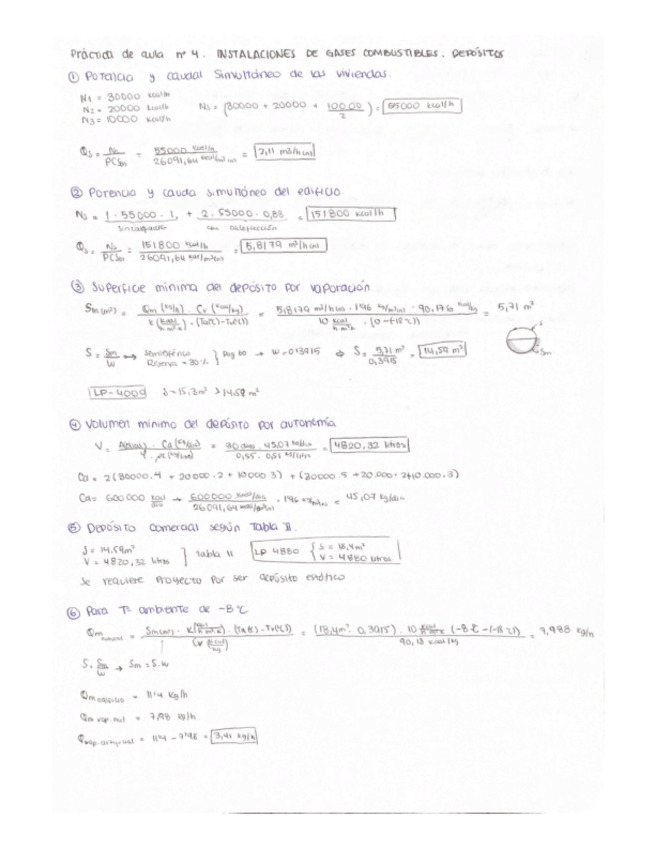 Práctica de aula nº 4. INSTALACIONES DE GASES COMBUSTIBLES. DEPÓSITOS
① Potencia y caudal simultáneo de las viviendas.
N1 = 30000 kcal/h
N2 = 20000 kcal/h
N3 = 10000 kcal/h
Ns = (30000 + 20000 + 10000/2) = 55000 kcal/h
Qs = Ns/PCSm = 55000 kcal/h / 26091,64 kcal/m³(n) = 2,11 m³/h(n)
② Potencia y caudal simultáneo del edificio
Ns = 1 · 55000 · 1, + 2 · 55000 · 0,88 = 151800 kcal/h
sin calefacción con calefacción
Qs = Ns/PCSm = 151800 kcal/h / 26091,64 kcal/m³(n) = 5,8179 m³/h(n)
③ Superficie mínima del depósito por vaporación
Sm(m²) = Qm (kg/h) · Cv (kcal/kg) / K (kcal/h m² K) · (Ta(ºC) - Tv(ºC)) = 5,8179 m³/h(n) · 1'96 kg/m³(n) · 90,176 kcal/kg / 10 kcal/h m² K · (0-(-18ºC)) = 5,71 m²
S = Sm/W → Semiesférico Reserva = 30% } pag 60 → W = 0,3915 ⇒ S = 5,71 m²/0,3915 = 14,59 m²
Sm
LP-4009 S = 15,3 m² > 14,59 m²
④ Volumen mínimo del depósito por autonomía
V = A(días) · Cd (kg/día) / φ · ρs (kg/litro) = 30 días · 45,07 kg/día / 0,55 · 0,51 kg/litro = 4820,32 litros
Cd = 2(30000·4 + 20000·2 + 10000·3) + (30000·5 + 20.000·2 + 10.000·3)
Cd = 600000 kcal/día → 600000 kcal/día / 26091,64 kcal/m³(n) · 1'96 kg/m³(n) = 45,07 kg/día
⑤ Depósito comercial según Tabla II.
S = 14,59 m²
V = 4820,32 litros } tabla II LP 4880 { S = 18,4 m² V = 4880 litros
Se requiere PROYECTO por ser depósito estático
⑥ Para Tª ambiente de -8ºC
Qm natural = Sm(m²) · K (kcal/h m² K) · (Ta(ºC) - Tv(ºC)) / Cv (kcal/kg) = (18,4 m² · 0,3915) · 10 kcal/h m² K · (-8ºC - (-18ºC)) / 90,18 kcal/kg = 7,988 kg/h
S = Sm/W → Sm = S·W
Qm edificio = 11'4 kg/h
Qm vap. nat = 7,98 kg/h
Qvap. artificial = 11'4 - 7'98 = 3,41 kg/h